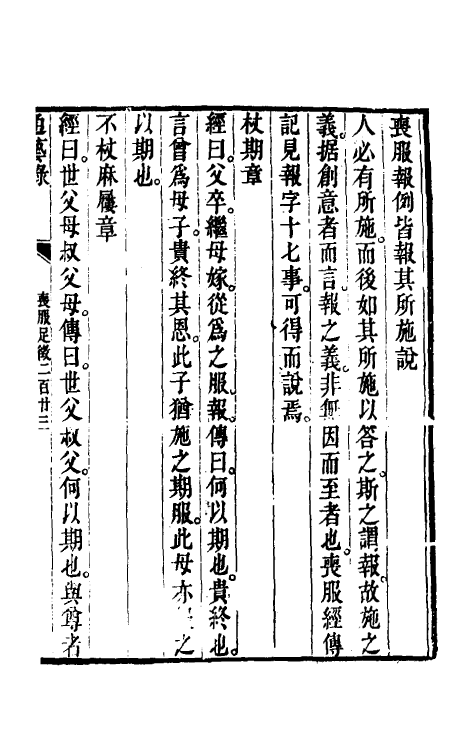 喪服報例皆報其所施說
人必有所施而後如其所施以答之斯之謂報故施之
義据創意者而言報之義非無因而至者也喪服經傳
記見報字十七事可得而說焉
杖期章
經曰父卒繼母嫁從爲之服報傳曰何以期也貴終也
言曾爲母子貴終其恩此子猶施之期服此母亦之
以期也
不杖麻屨章
經曰世父母叔父母傳曰世父叔父何以期也與尊者
通藝錄
喪服足徵二百廿三